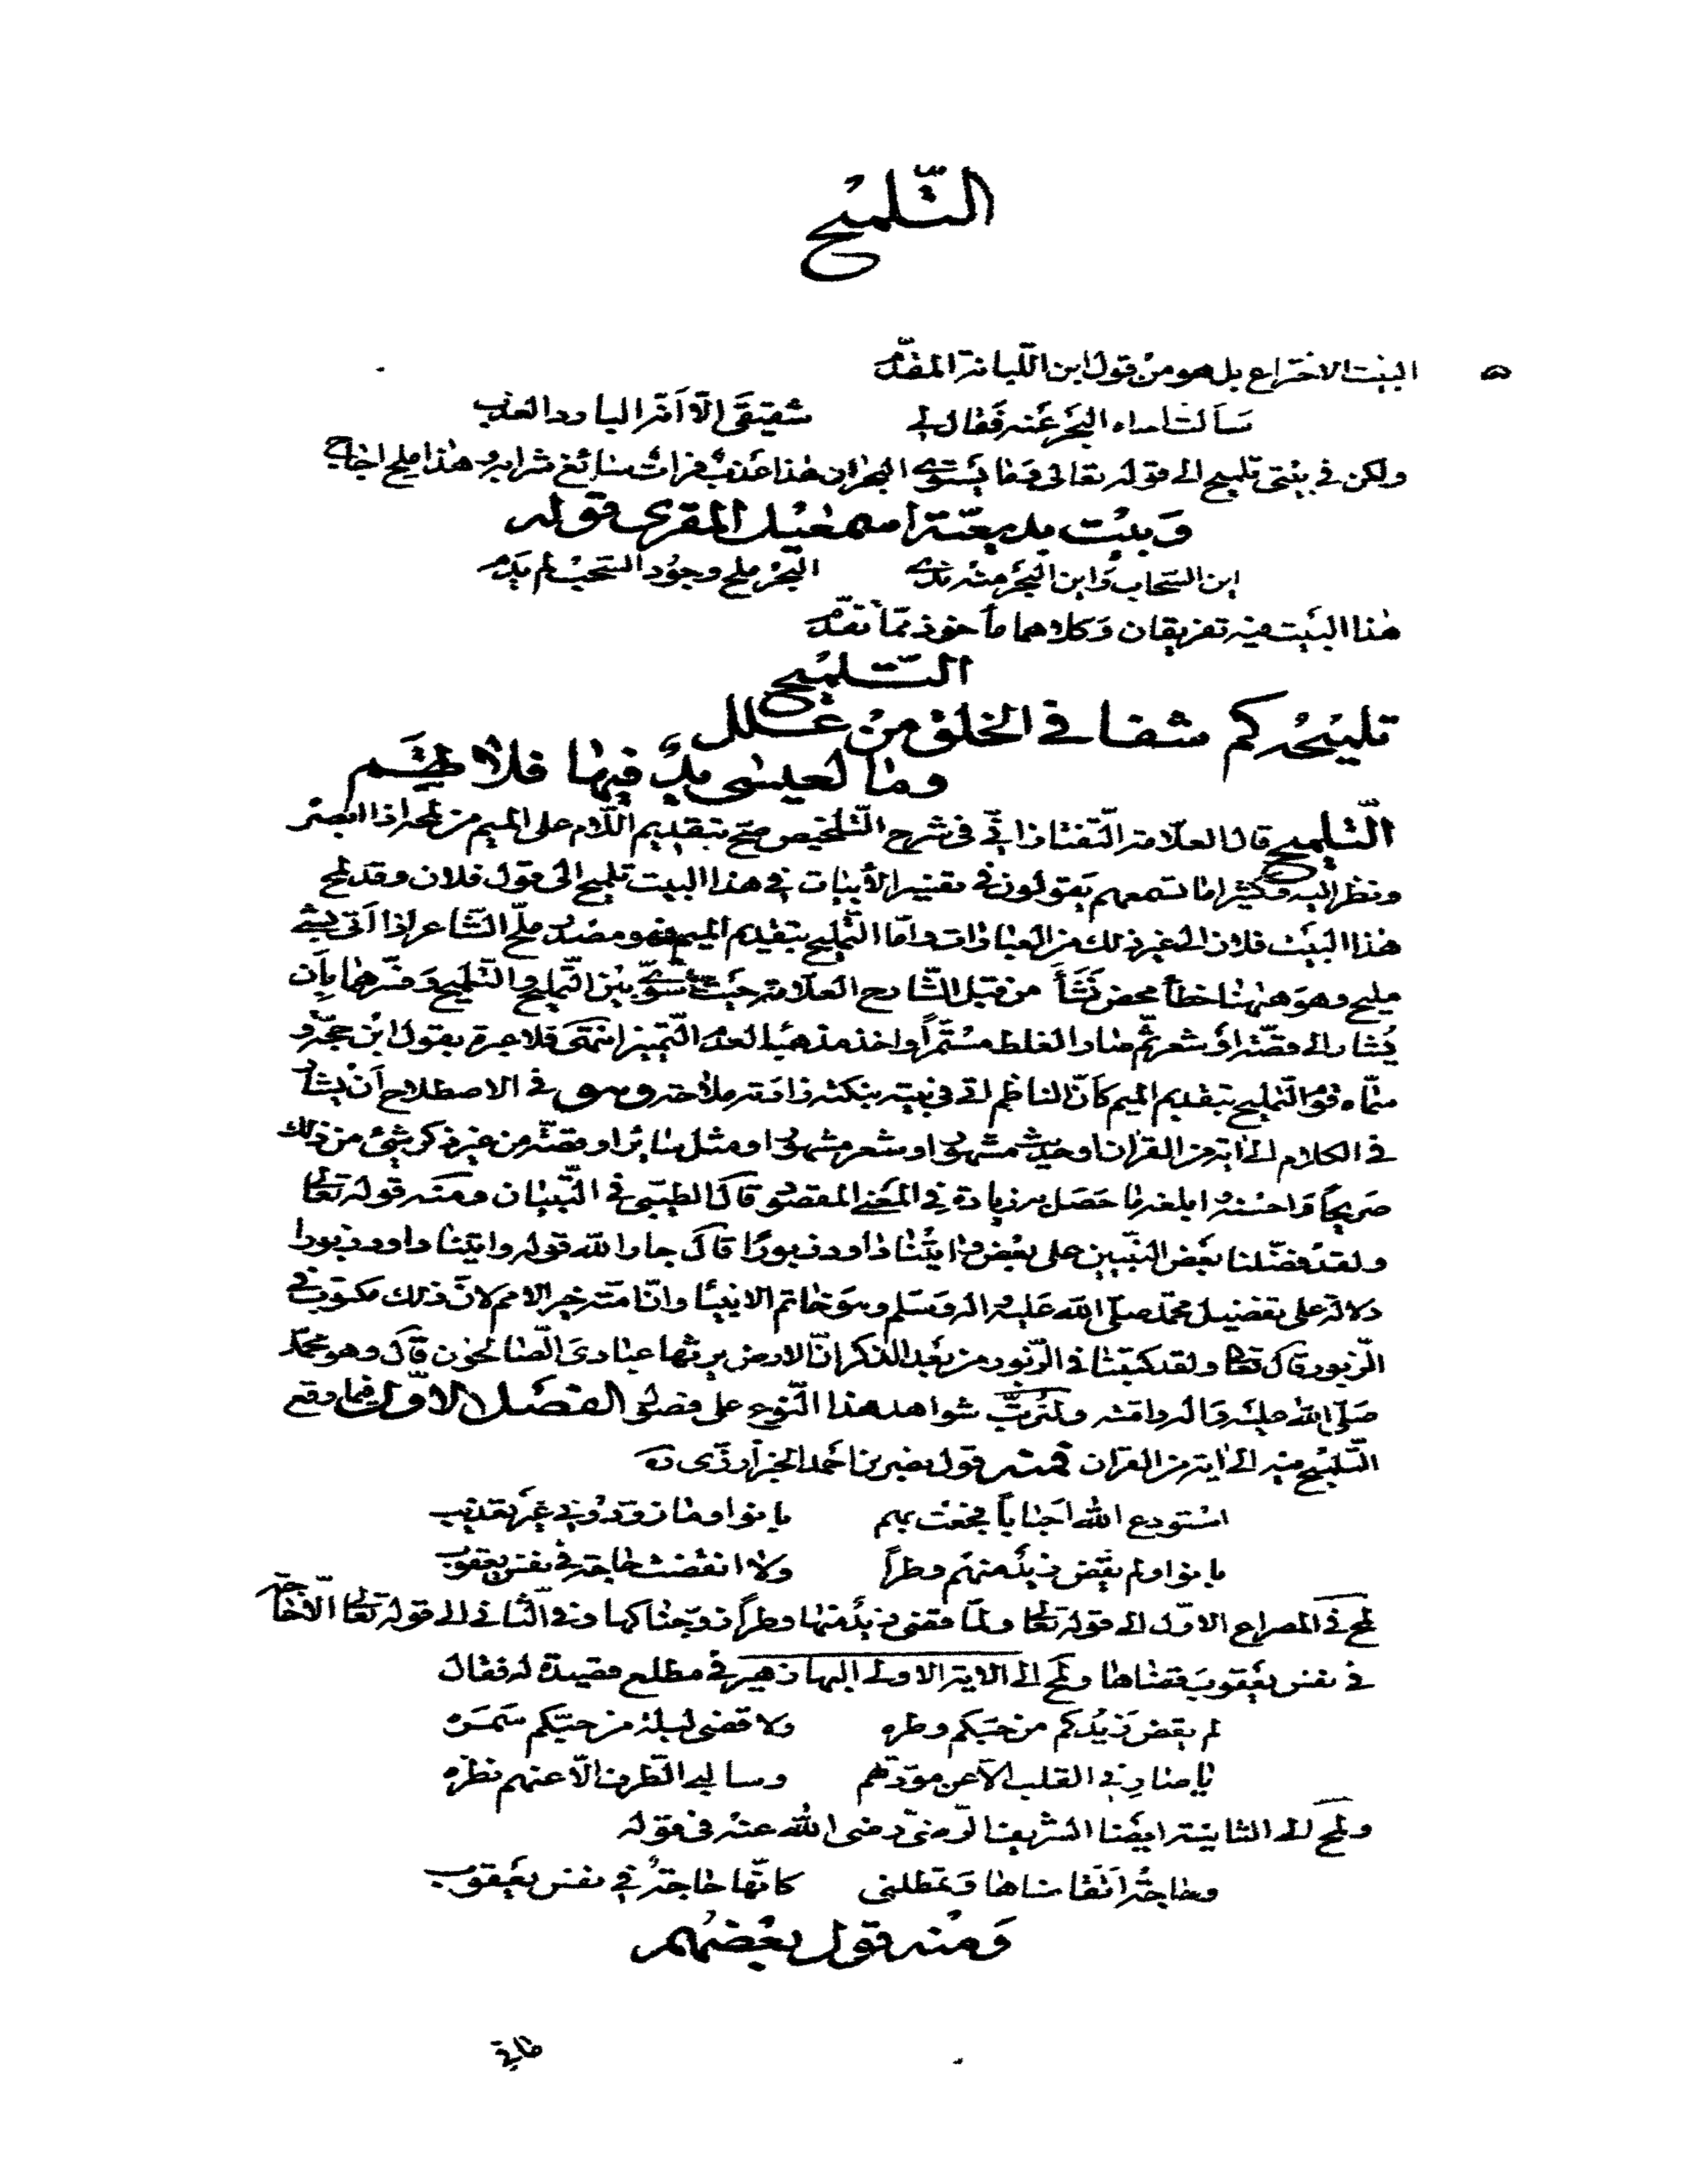 التّلميح
البيت الاختراع بل هو من قول ابن اللبانة المقدّم
سَألت اساء البحر عنه فقال لي شقيقي الّا انّه البارد العذب
ولكن في بيتي تلميح الى قوله تعالى وَما يَستوي البحران هذا عذبٌ فراتٌ سائغ شرابه وهذا ملح اجاج
وَبيْت بديعيّة اسمعيل المقري قوله
ابن السّحاب وَابن البَحر منه ندى البحْر ملح وجُود السّحْب لم يَدُم
هٰذا البَيت فيه تفريقان وَكلاهما مأخوذ ممّا تقدّم
التّلميح
تلميْحُه كم شفا في الخلق منْ عَلل
ومٰا لعيسٰى يدٌ فيهٰا فلٰا تهم
التّلميح قال العلّامة التّفتازاني في شرح التّلخيص صحّ بتقديم اللّام على الميم من لمحه اذا ابصره
ونظر اليه وكثيرا ما تسمعهم يَقولون في تفسير الأبيات في هذا البيت تلميح الى قول فلان وقد لمح
هٰذا البَيْت فلان الى غير ذلك من العبارات وامّا التّمليح بتقديم الميم فهو مصْدر ملّح الشّاعر اذا اَتى بشيء
مليح وهوَ هٰهنا خطأ محض نَشَأَ من قبل الشّارح العلّامة حيْث سَوّى بيْن التّمليح والتّلميح وَفسّرهما بأن
يُشار الى قصّة اوْ شعر ثم صار الغلط مسْتمرّاً واخذ مذهبًا لعدَم التّمييز انتهى فلا عبرة بقول ابْن حجّة و
سمّاه قومٌ التّمليح بتقديم الميم كأنّ الناظم اتى في بيته بنكتة زادته ملاحة وهو في الاصطلاح اَنْ يشار
في الكلام الى اٰية من القراٰن او حديث مشهور او شعر مشهور او مثل سائر او قصّة من غير ذكر شئ من ذلك
صَريحًا وَاحسنه وابلغه مٰا حَصَل به زيادة في المَعْنى المقصود قاَل الطيبّي في التّبيان ومنه قوله تعالى
ولقدْ فضّلنا بَعض النبيّين على بعْض وَاٰتيْنا دٰاود زبورًا قاَل جار اللّه قوله واٰتينا داود زبورا
دَلالة على تفضيل محمّد صلّى اللّه عَليْه اله وَسَلم وهوَ خٰاتم الانبيٰا وانّ امّته خير الامم لانّ ذلك مكتوب في
الزّبور قاَل تعٰالى ولقد كتبْنا في الزّبور من بَعْد الذّكر انّ الارض يرثها عبٰاديَ الصّالحون قاَل وهو محمّد
صَلّى اللّه عليْه وَاله وامّته ولنُرتّب شواهد هذا النّوع على فصُول الفصَل الاوّل فيما وقع
التّلميْح فيه الى اٰية من القراٰن فمنه قول نصر بن احمد الخبزارزّى
اسْتودع اللّه احبٰاباً فجعت بهم بانوا ومٰا زوّدُوني غَيْر تعْذيب
بانوا ولم يقْض زيْدٌ منهم وطراً ولٰا انقضت حٰاجة في نفس يعقوب
لمح في المصراع الاوّل الى قوله تعٰالى ولمّا قضى زيْدٌ منهٰا وطراً زوّجنٰاكها وفي الثّاني الى قوله تعٰالى الّا حٰاجة
في نفس يعْقوبَ قضٰاها ولمح الى الاية الاولى البهاء زهير في مطلع قصيدة له فقال
لم يقض زيْدكم من حبّكم وطره ولا قضى ليله من حبّكم سَمَره
يٰا صٰارفي القلب الّا عن مودّتهم وسالبي الطّرف الّا عنهم نظره
ولمح الى الثانية ايضًا الشّريف الرّضيّ رضى اللّه عنه في قوله
وحاجة اَتقاضاها وَتمطلني كانّها حٰاجةٌ في نفس يعَقوب
وَمنْه قول بعْضهُم